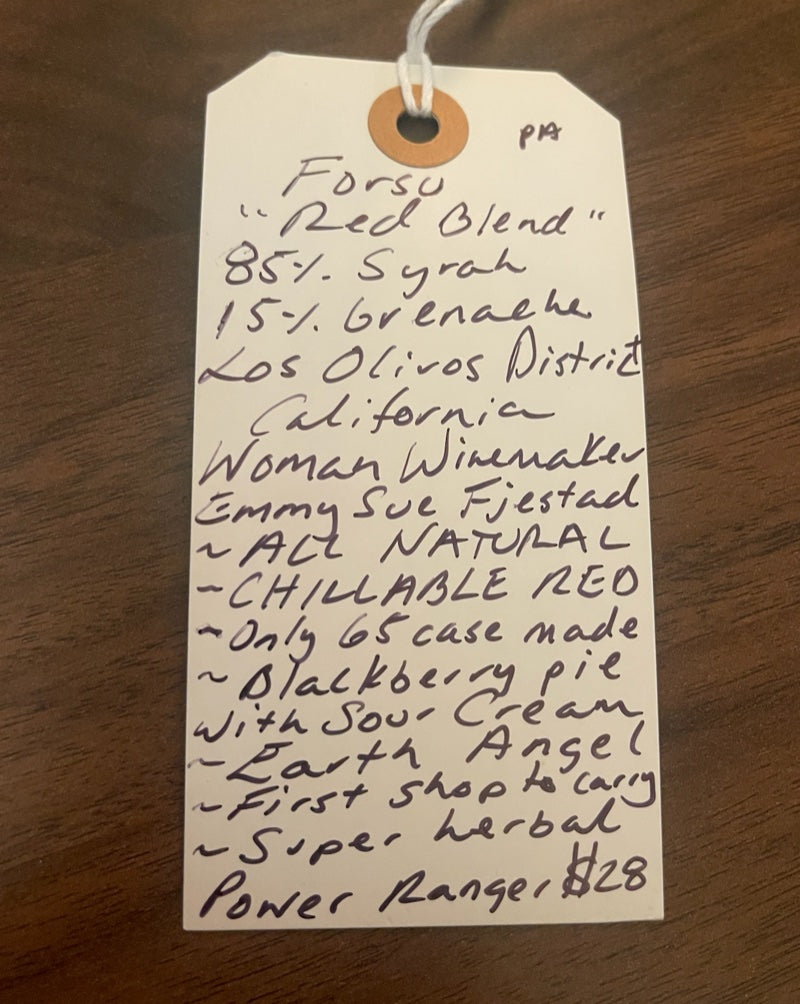 PA
Forsu
"Red Blend"
85% Syrah
15% Grenache
Los Olivos District
California
Woman Winemaker
Emmy Sue Fjestad
~ ALL NATURAL
~ CHILLABLE RED
~ Only 65 case made
~ Blackberry pie
with Sour Cream
~ Earth Angel
~ First shop to carry
~ Super herbal
Power Ranger $28